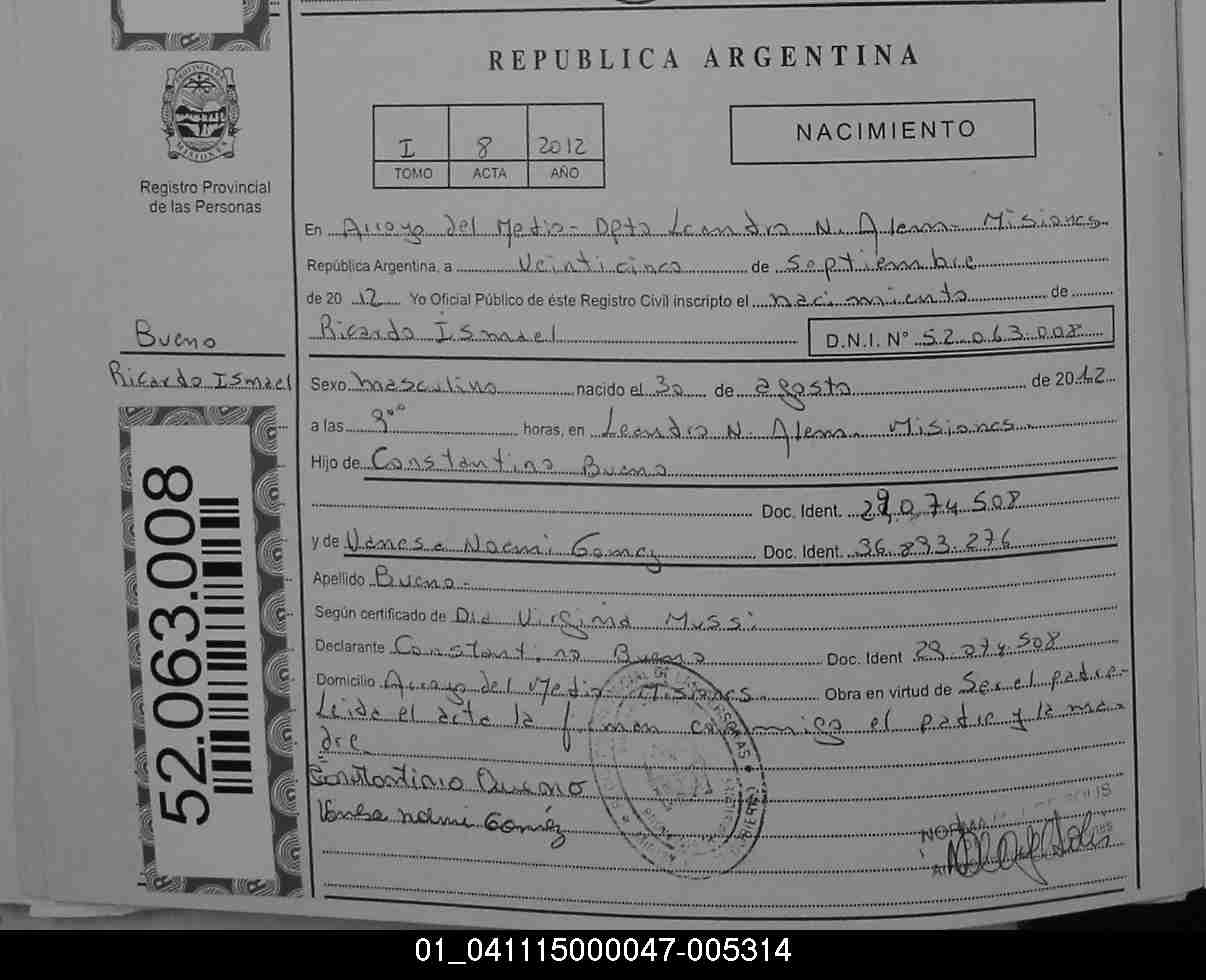 REPUBLICA ARGENTINA
I 8 2012
TOMO ACTA AÑO
NACIMIENTO
PROVINCIA DE MISIONES
Registro Provincial
de las Personas
Bueno
Ricardo Ismael
52.063.008
En Arroyo del Medio - Dpto Leandro N. Alem - Misiones
República Argentina, a Veinticinco de septiembre
de 2012 Yo Oficial Público de éste Registro Civil inscripto el nacimiento de
Ricardo Ismael D.N.I. N° 52.063.008
Sexo masculino nacido el 30 de agosto de 2012
a las horas, en Leandro N. Alem - Misiones
Hijo de Constantino Bueno
Doc. Ident. 29.074.508
y de Vanesa Noemi Gomez Doc. Ident. 36.893.276
Apellido Bueno
Según certificado de Dra Virginia Mussi
Declarante Constantino Bueno Doc. Ident 29.074.508
Domicilio Arroyo del Medio - Misiones Obra en virtud de Ser el padre
Leida el acta la firman conmigo el padre y la ma-
dre
Constantino Bueno
Vanesa Noemi Goméz
01_041115000047-005314